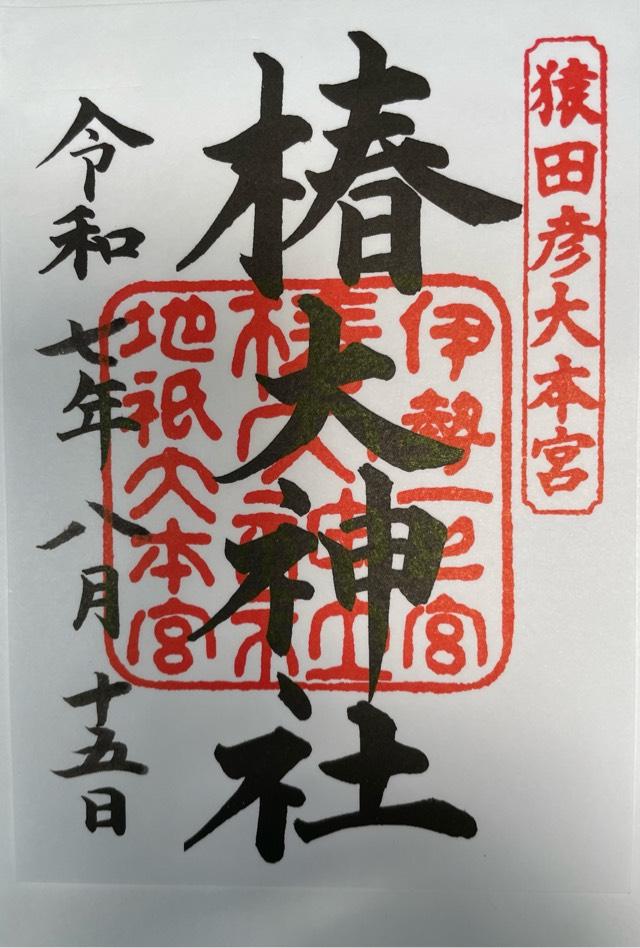 猿田彦大本宮
椿大神社
伊勢一之宮
椿大神社
地祇大本宮
令和七年八月十五日